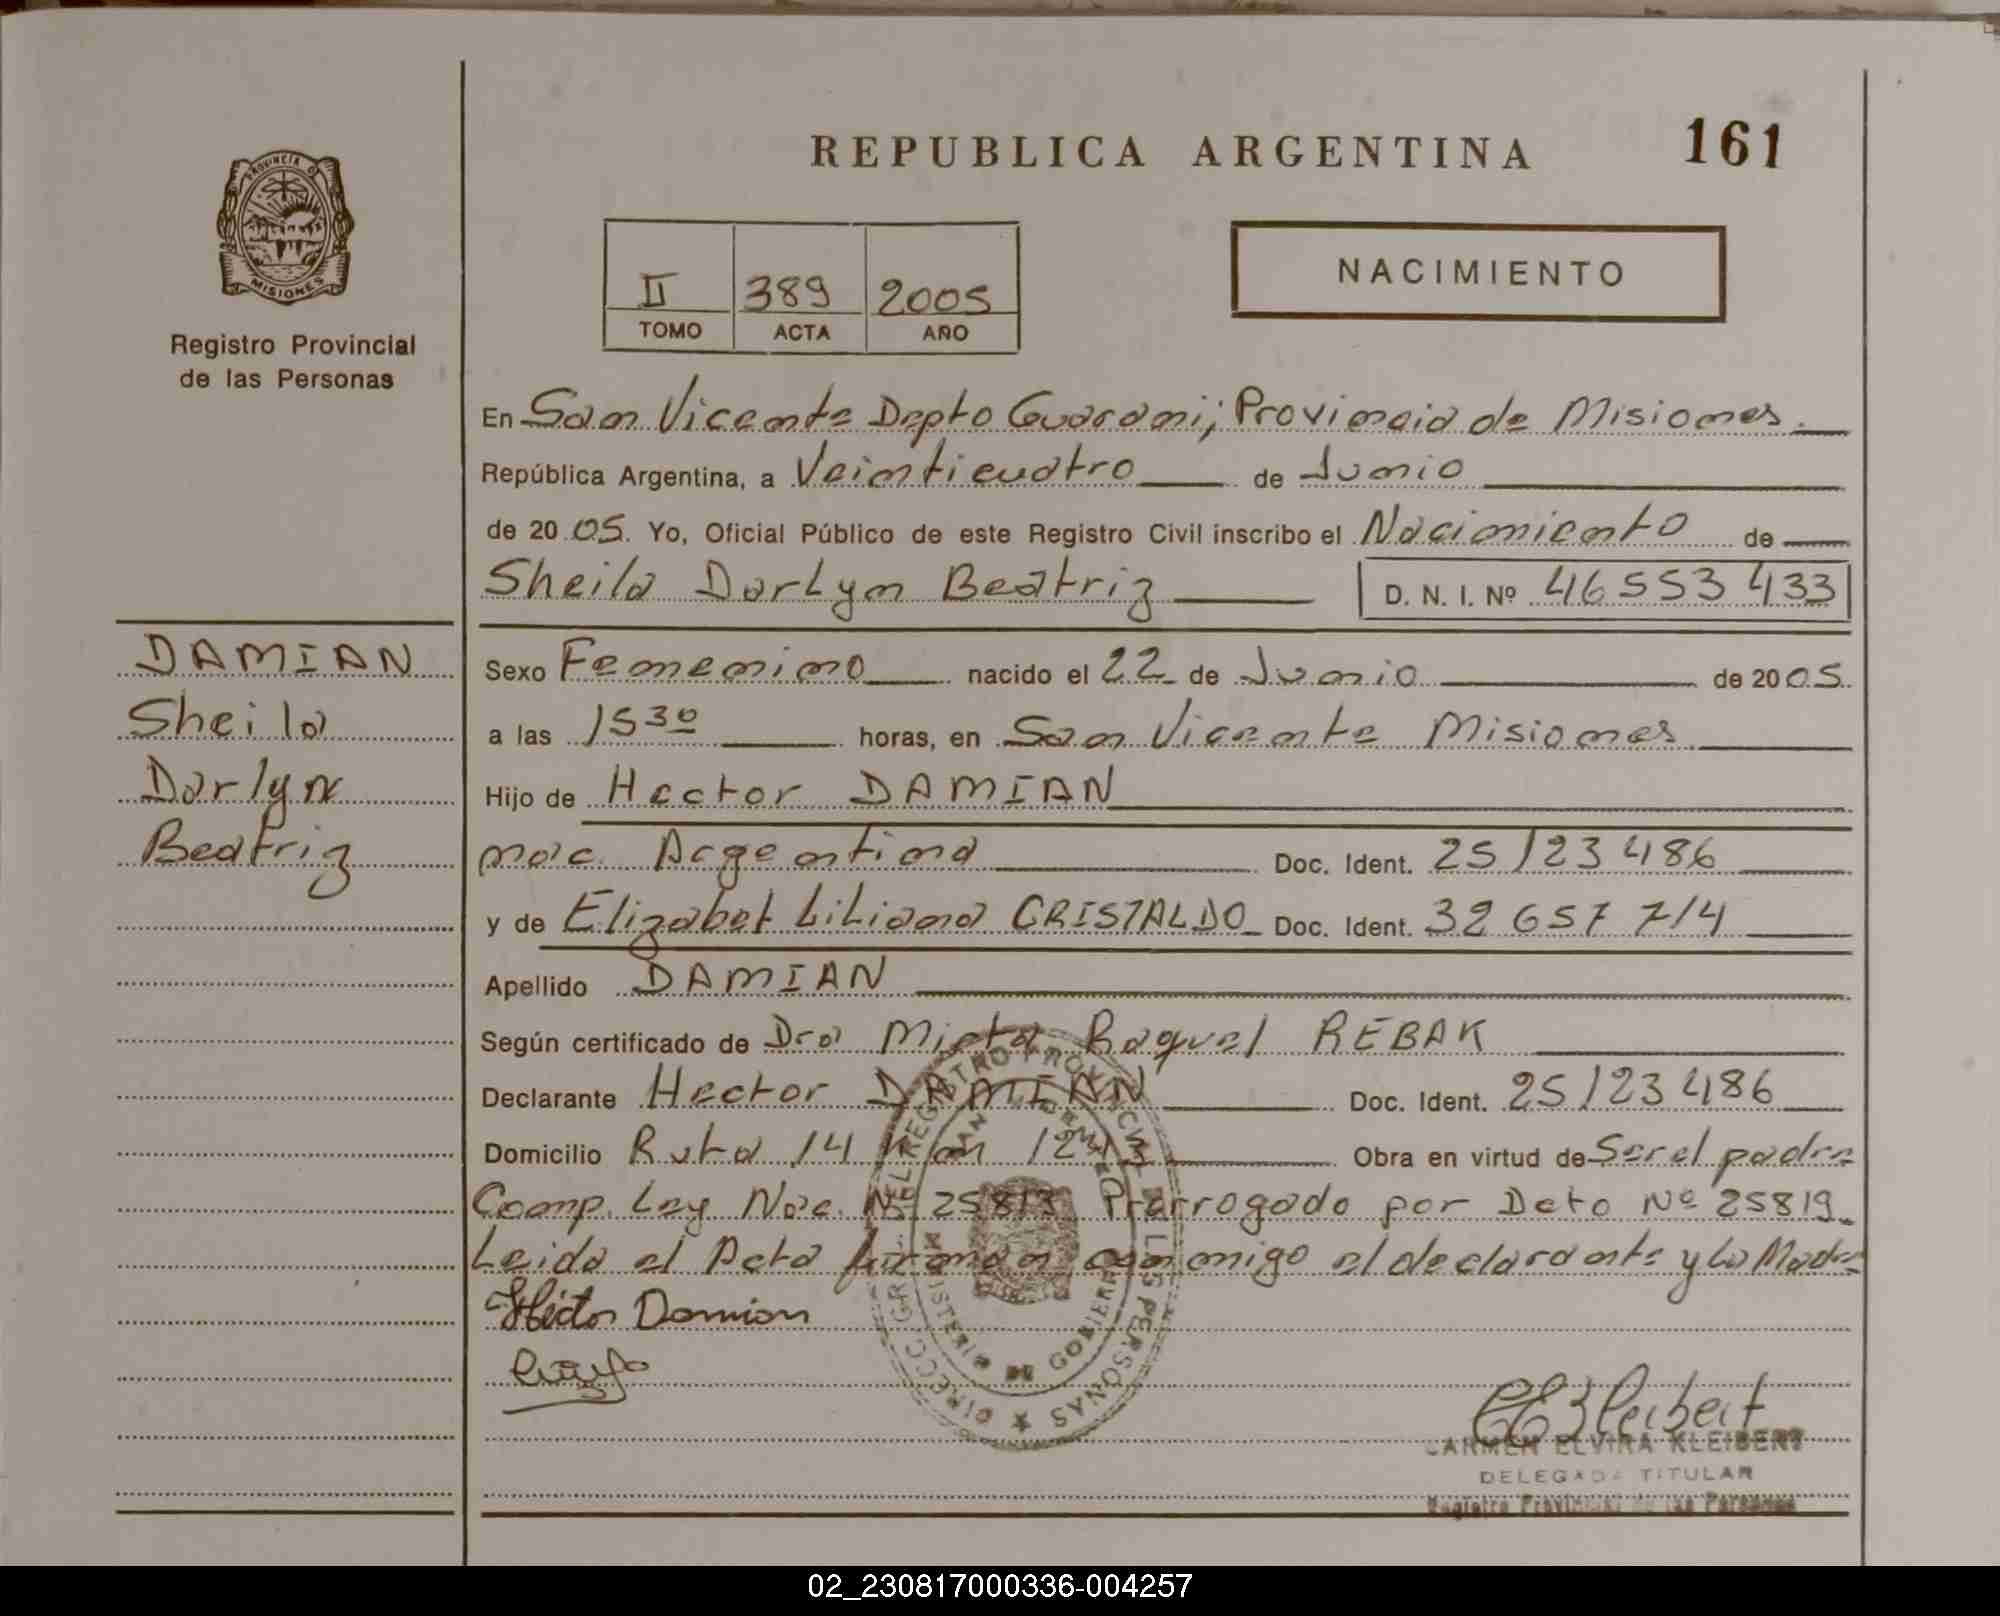 REPUBLICA ARGENTINA
161
PROVINCIA DE
MISIONES
Registro Provincial
de las Personas
II 389 2005
TOMO ACTA AÑO
NACIMIENTO
En San Vicente Depto Guarani; Provincia de Misiones.
República Argentina, a Veinticuatro de Junio
de 2005. Yo, Oficial Público de este Registro Civil inscribo el Nacimiento de
Sheila Darlyn Beatriz D. N. I. Nº 46553433
DAMIAN
Sheila
Darlyn
Beatriz
Sexo Femenino nacido el 22 de Junio de 2005.
a las 15 30 horas, en San Vicente Misiones
Hijo de Hector DAMIAN
nac. Argentina Doc. Ident. 25123486
y de Elizabet Liliana CRISTALDO Doc. Ident. 32 657 714
Apellido DAMIAN
Según certificado de Dra Mirta Raquel REBAK
Declarante Hector DAMIAN Doc. Ident. 25123486
Domicilio Ruta 14 Obra en virtud de Ser el padre
Comp. Ley Nac. Nº 25813 Prorrogado por Dcto Nº 25819.
Leida el Acta firman conmigo el declarante y La Madre
Hector Damian
CARMEN ELVIRA KLEIBERT
DELEGADA TITULAR
Registro Provincial de las Personas
DIRECC. GRAL. DEL REGISTRO PROVINCIAL DE LAS PERSONAS
MINISTERIO DE GOBIERNO
02_230817000336-004257